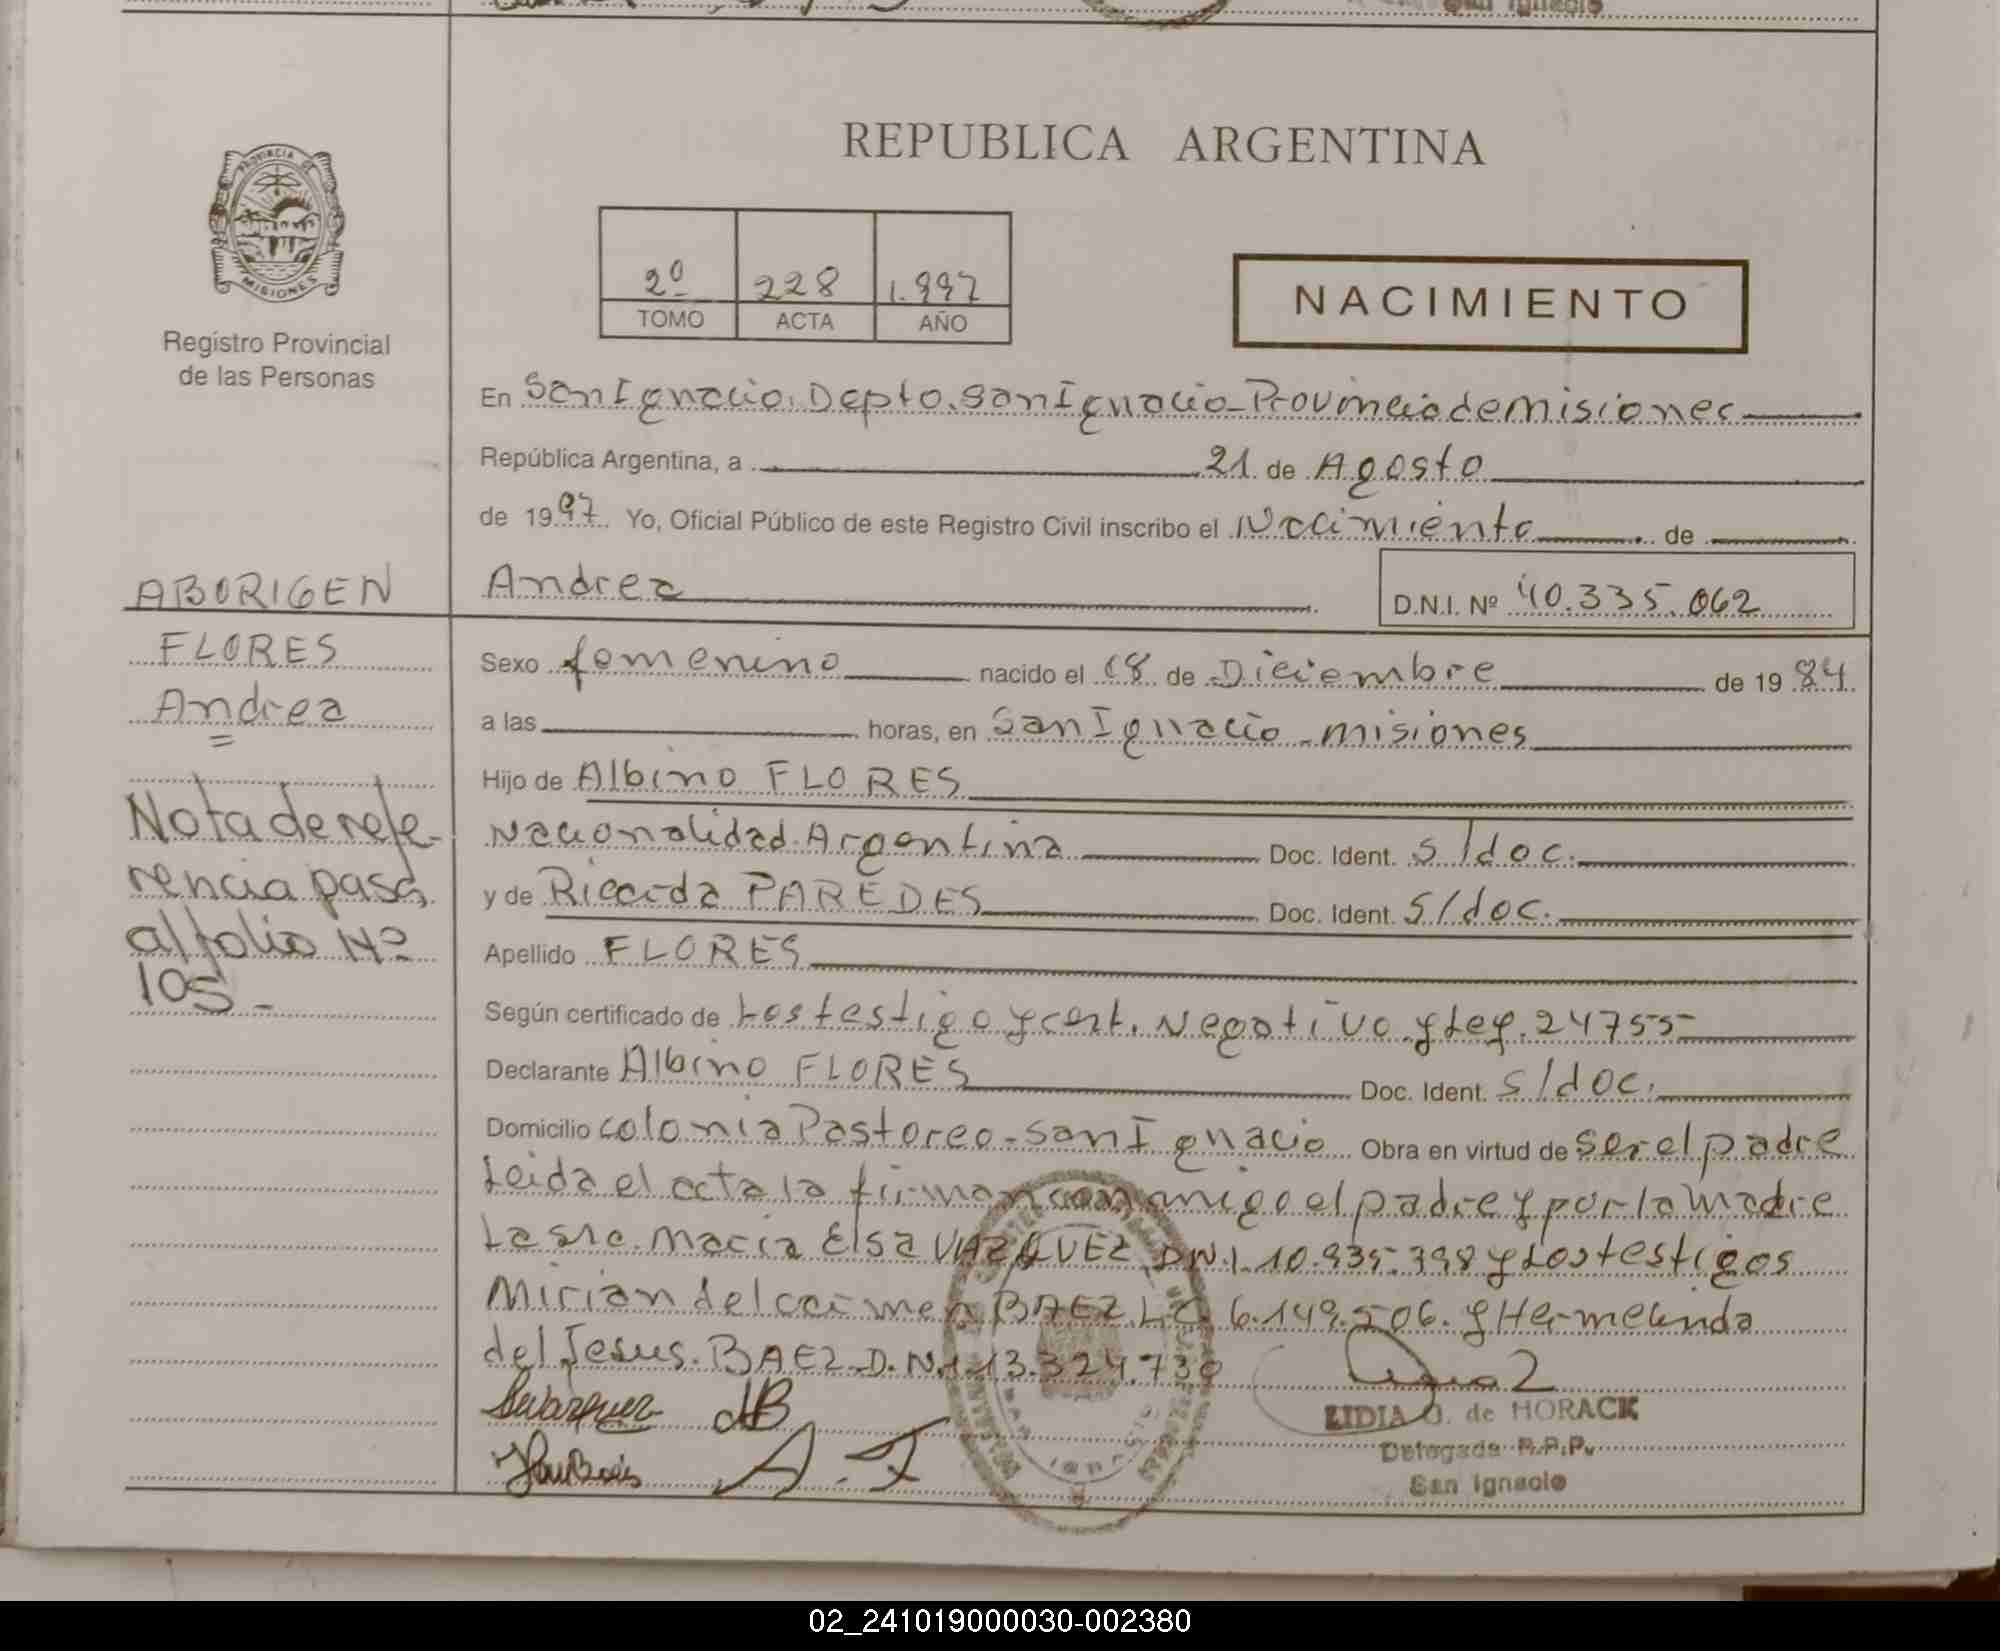 REPUBLICA ARGENTINA
PROVINCIA DE MISIONES
Registro Provincial
de las Personas
2º 228 1.997
TOMO ACTA AÑO
NACIMIENTO
En San Ignacio. Depto. San Ignacio - Provincia de misiones
República Argentina, a 21 de Agosto
de 1997 Yo, Oficial Público de este Registro Civil inscribo el Nacimiento de
ABORIGEN
Andrea D.N.I. Nº 40.335.062
FLORES
Andrea
Nota de refe-
rencia pasa
al folio Nº
105-
Sexo femenino nacido el 18 de Diciembre de 1984
a las horas, en San Ignacio - misiones
Hijo de Albino FLORES
Nacionalidad Argentina Doc. Ident. s/doc.
y de Ricarda PAREDES Doc. Ident. s/doc.
Apellido FLORES
Según certificado de Los testigo y cert. Negativo y Ley. 24755
Declarante Albino FLORES Doc. Ident. s/doc.
Domicilio colonia Pastoreo - San Ignacio Obra en virtud de ser el padre
Leida el acta la firman conmigo el padre y por la madre
La sra. Maria Elsa VAZQUEZ DN.I. 10.935.798 y Los testigos
Mirian del carmen BAEZ L.C. 6.149.506. y Hermelinda
del Jesus. BAEZ D.N.I 13.324.730
A. F
LIDIA O. de HORACK
Delegada R.P.P.
San Ignacio
02_241019000030-002380